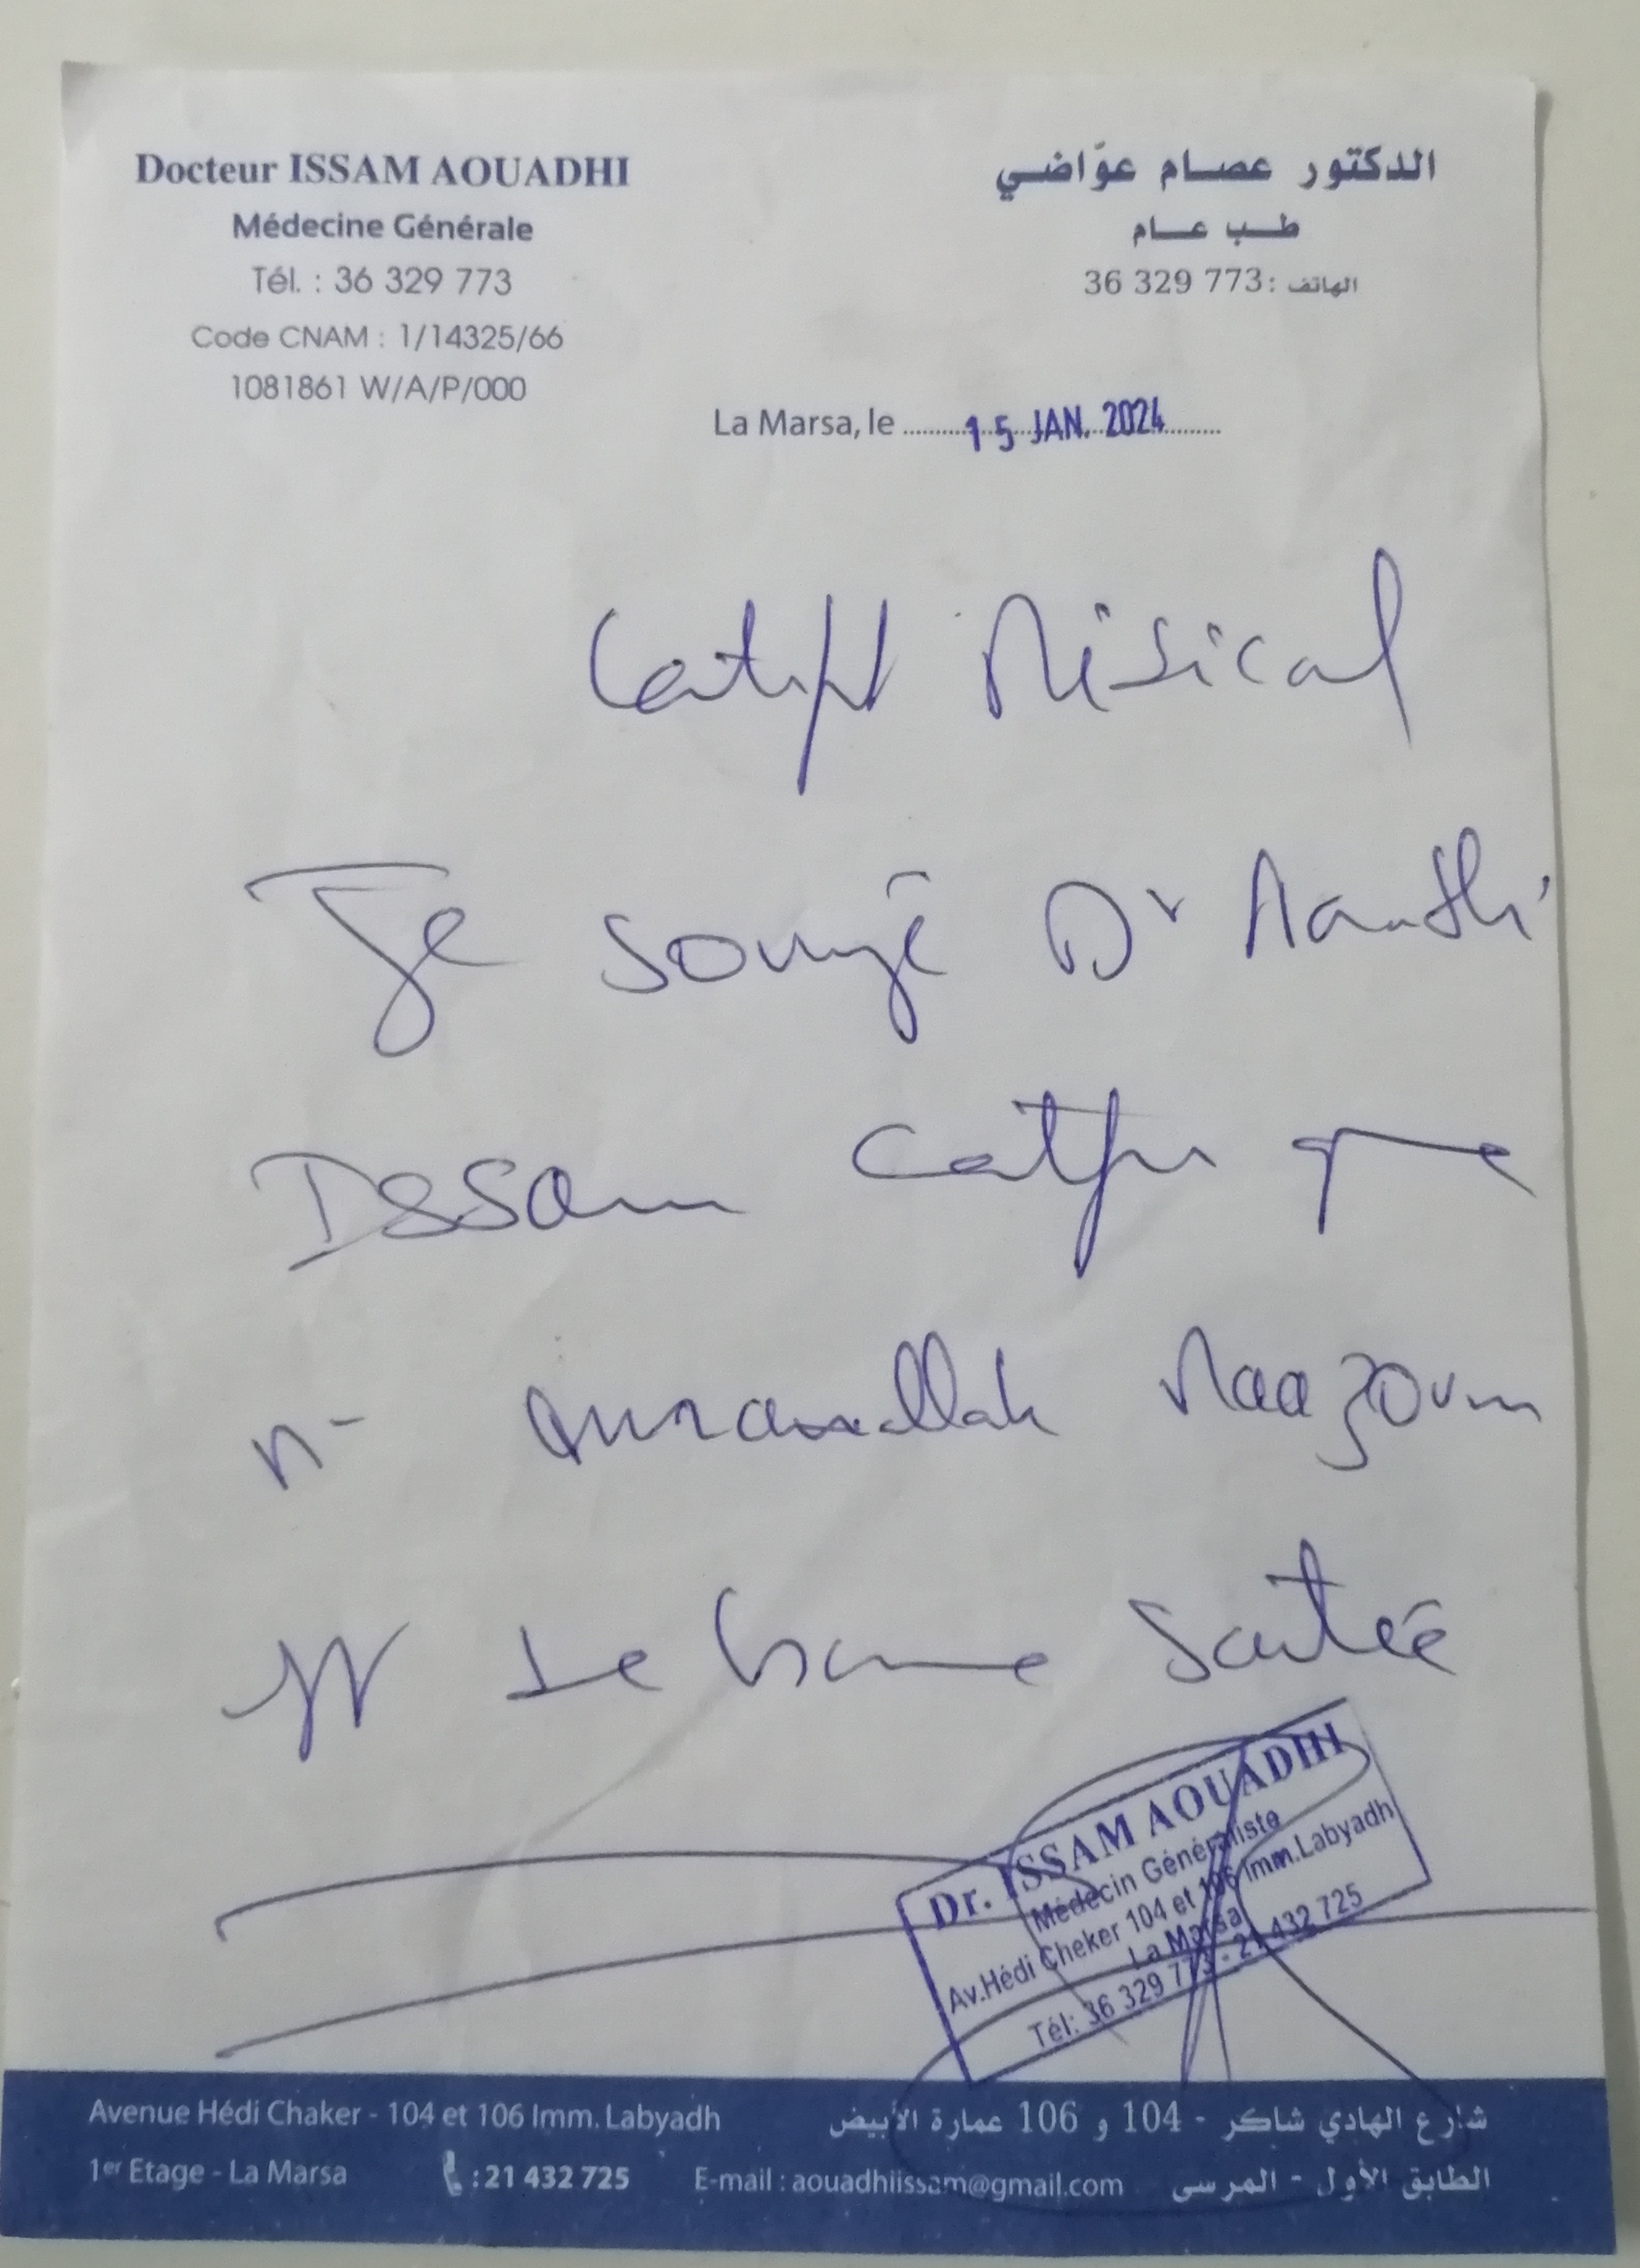 Docteur ISSAM AOUADHI
Médecine Générale
Tél. : 36 329 773
Code CNAM : 1/14325/66
1081861 W/A/P/000
الدكتور عصام عوّاضي
طب عام
الهاتف : 36 329 773
La Marsa, le 15 JAN. 2024
Certificat Médical
Je soussigné Dr Aouadhi
Issam certifie que
Maazoum
de bonne Santée
Dr. ISSAM AOUADHI
Médecin Généraliste
Av.Hédi Cheker 104 et 106 Imm.Labyadh
La Marsa
Tél: 36 329 773 - 21 432 725
Avenue Hédi Chaker - 104 et 106 Imm. Labyadh
1er Etage - La Marsa
: 21 432 725
E-mail : aouadhiissam@gmail.com
شارع الهادي شاكر - 104 و 106 عمارة الأبيض
الطابق الأول - المرسى